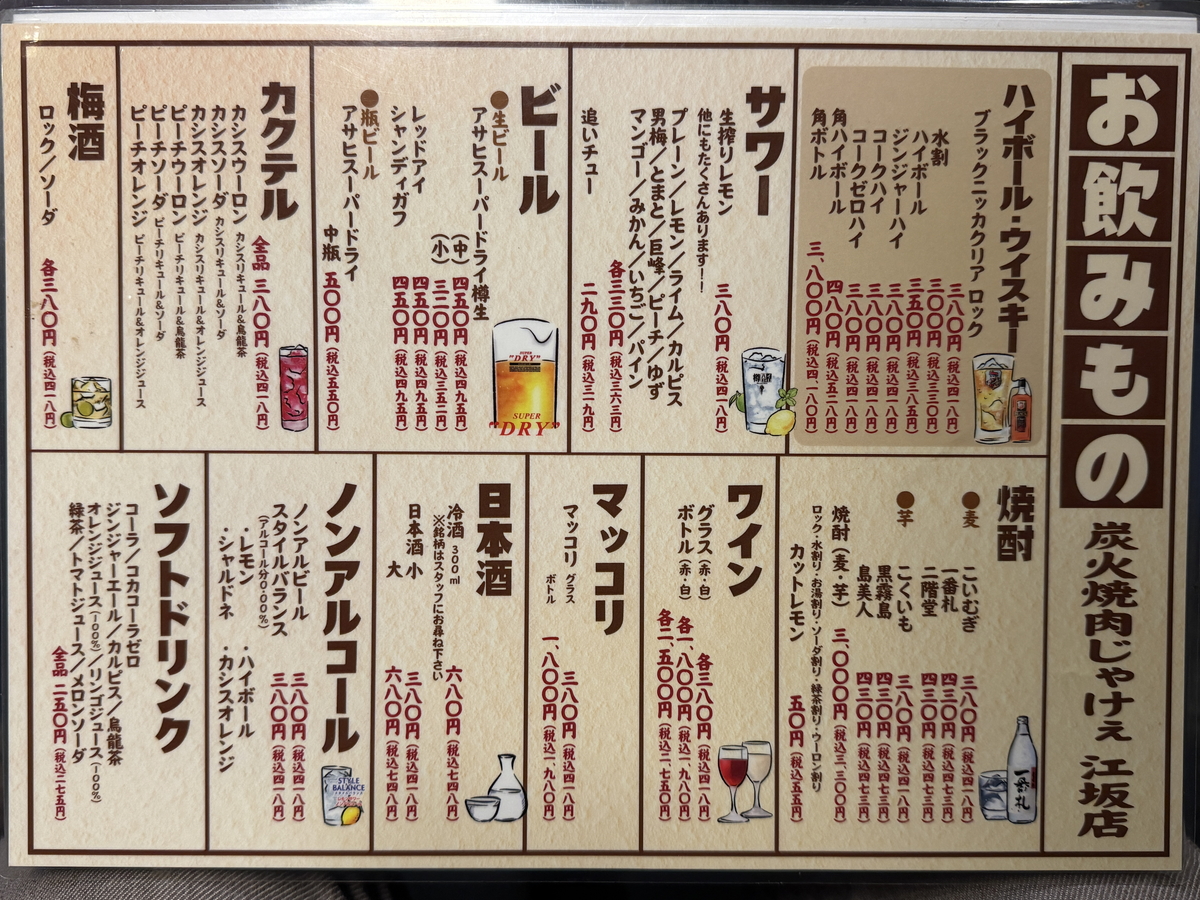 お飲みもの
炭火焼肉じゃけぇ 江坂店
ハイボール・ウイスキー
ブラックニッカクリア ロック 三八〇円(税込四一八円)
水割 三〇〇円(税込三三〇円)
ハイボール 三五〇円(税込三八五円)
ジンジャーハイ 三八〇円(税込四一八円)
コークハイ 三八〇円(税込四一八円)
コークゼロハイ 三八〇円(税込四一八円)
角ハイボール 四八〇円(税込五二八円)
角ボトル 三、八〇〇円(税込四、一八〇円)
サワー
生搾りレモン 三八〇円(税込四一八円)
他にもたくさんあります!!
プレーン/レモン/ライム/カルピス
男梅/とまと/巨峰/ピーチ/ゆず
マンゴー/みかん/いちご/パイン
各三三〇円(税込三六三円)
追いチュー 二九〇円(税込三一九円)
ビール
●生ビール
アサヒスーパードライ樽生
(中) 四五〇円(税込四九五円)
(小) 三二〇円(税込三五二円)
レッドアイ 四五〇円(税込四九五円)
シャンディガフ 四五〇円(税込四九五円)
●瓶ビール
アサヒスーパードライ
中瓶 五〇〇円(税込五五〇円)
SUPER
"DRY"
SUPER
"DRY"
カクテル
全品 三八〇円(税込四一八円)
カシスウーロン カシスリキュール&烏龍茶
カシスソーダ カシスリキュール&ソーダ
カシスオレンジ カシスリキュール&オレンジジュース
ピーチウーロン ピーチリキュール&烏龍茶
ピーチソーダ ピーチリキュール&ソーダ
ピーチオレンジ ピーチリキュール&オレンジジュース
梅酒
ロック/ソーダ 各三八〇円(税込四一八円)
焼酎
●麦
こいむぎ 三八〇円(税込四一八円)
一番札 四三〇円(税込四七三円)
二階堂 四三〇円(税込四七三円)
●芋
こくいも 三八〇円(税込四一八円)
黒霧島 四三〇円(税込四七三円)
島美人 四三〇円(税込四七三円)
焼酎(麦・芋) 三、〇〇〇円(税込三、三〇〇円)
ロック・水割り・お湯割り・ソーダ割り・緑茶割り・ウーロン割り
カットレモン 五〇円(税込五五円)
一番札
ワイン
グラス(赤・白) 各三八〇円(税込四一八円)
ボトル(赤・白) 各一、八〇〇円(税込一、九八〇円)
各二、五〇〇円(税込二、七五〇円)
マッコリ
マッコリ グラス 三八〇円(税込四一八円)
ボトル 一、八〇〇円(税込一、九八〇円)
日本酒
冷酒 300ml 六八〇円(税込七四八円)
※銘柄はスタッフにお尋ね下さい
日本酒 小 三八〇円(税込四一八円)
大 六八〇円(税込七四八円)
ノンアルコール
ノンアルビール 三八〇円(税込四一八円)
スタイルバランス 三八〇円(税込四一八円)
(アルコール分0.00%)
・レモン ・ハイボール
・シャルドネ ・カシスオレンジ
STYLE
BALANCE
ソフトドリンク
コーラ/コカコーラゼロ
ジンジャーエール/カルピス/烏龍茶
オレンジジュース(100%)/リンゴジュース(100%)
緑茶/トマトジュース/メロンソーダ
全品 二五〇円(税込二七五円)